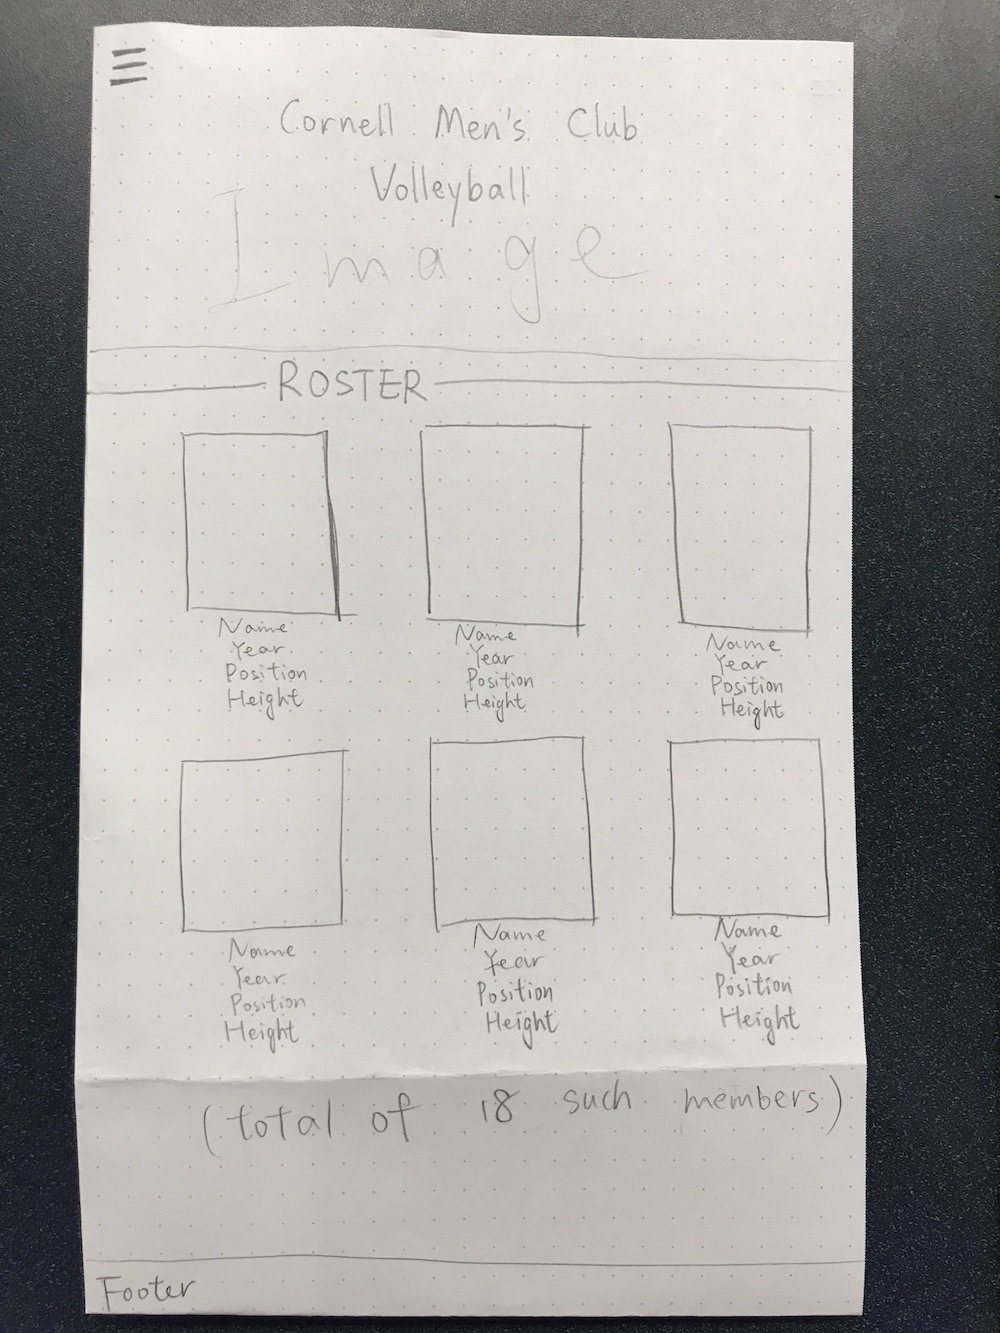 Cornell Men's Club
Volleyball
Image
ROSTER
Name
Year
Position
Height
Name
Year
Position
Height
Name
Year
Position
Height
Name
Year
Position
Height
Name
Year
Position
Height
Name
Year
Position
Height
(total of 18 such members)
Footer